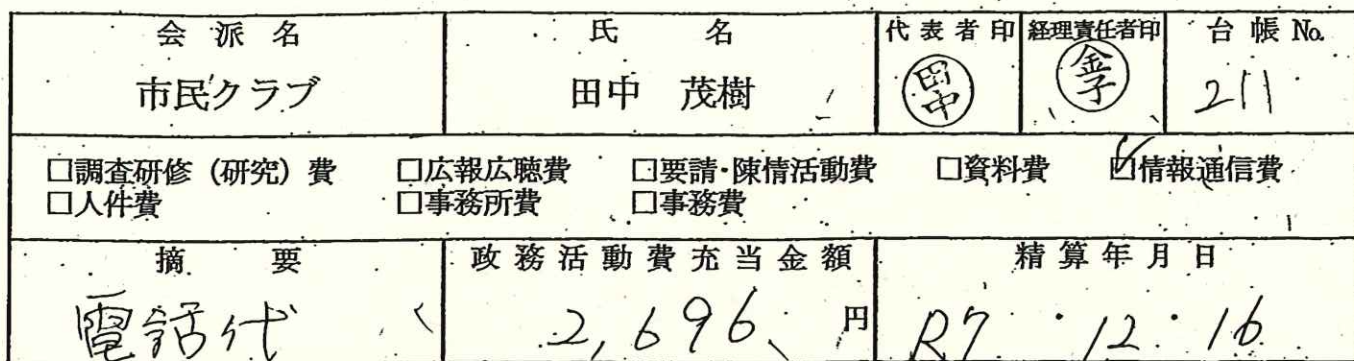 会派名 氏名 代表者印 経理責任者印 台帳No.
市民クラブ 田中 茂樹 田中 金子 211
□調査研修(研究)費 □広報広聴費 □要請・陳情活動費 □資料費 ☑情報通信費
□人件費 □事務所費 □事務費
摘要 政務活動費充当金額 精算年月日
電話代 2,696 円 R7・12・16